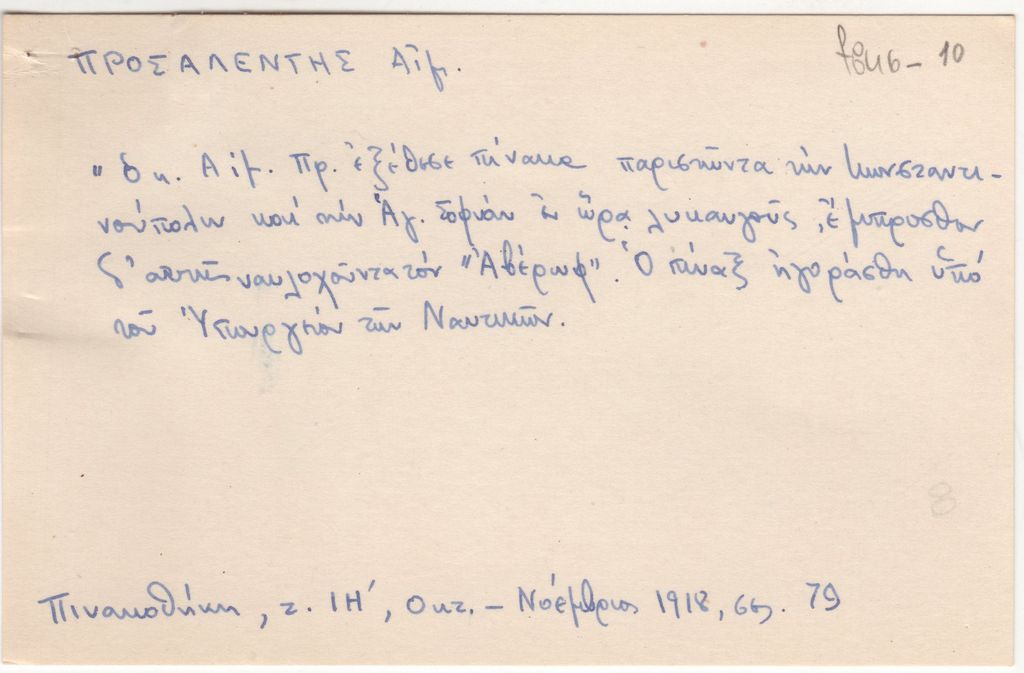 ΠΡΟΣΑΛΕΝΤΗΣ Αἰμ.
10
"ὁ κ. Αἰμ. Πρ. ἐξέθεσε πίνακα παριστῶντα τὴν Κωνσταντι-
νούπολιν καὶ τὴν Ἁγ. Σοφίαν ἐν ὥρᾳ λυκαυγοῦς, ἔμπροσθεν
δ' αὐτῆς ναυλοχοῦντα τόν "Ἀβέρωφ". Ὁ πίναξ ἠγοράσθη ὑπό
τοῦ Ὑπουργείου τῶν Ναυτικῶν.
8
Πινακοθήκη, τ. ΙΗ', Οκτ. - Νοέμβριος 1918, σελ. 79